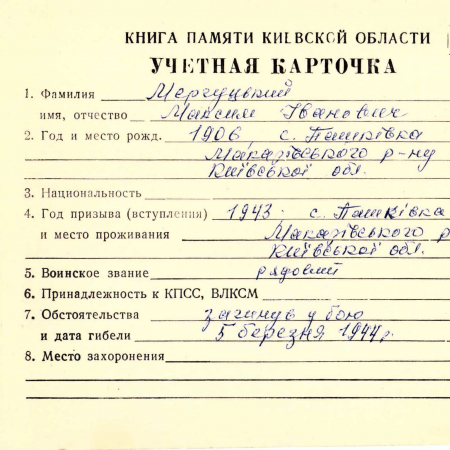 КНИГА ПАМЯТИ КИЕВСКОЙ ОБЛАСТИ
УЧЕТНАЯ КАРТОЧКА
1. Фамилия Мергуцький
имя, отчество Максим Іванович
2. Год и место рожд. 1906 с. Пашківка
Макарівського р-ну
Київської обл.
3. Национальность
4. Год призыва (вступления) 1943 с. Пашківка
и место проживания Макарівського р
Київської обл.
5. Воинское звание рядовий
6. Принадлежность к КПСС, ВЛКСМ
7. Обстоятельства загинув у бою
и дата гибели 5 березня 1944 р.
8. Место захоронения